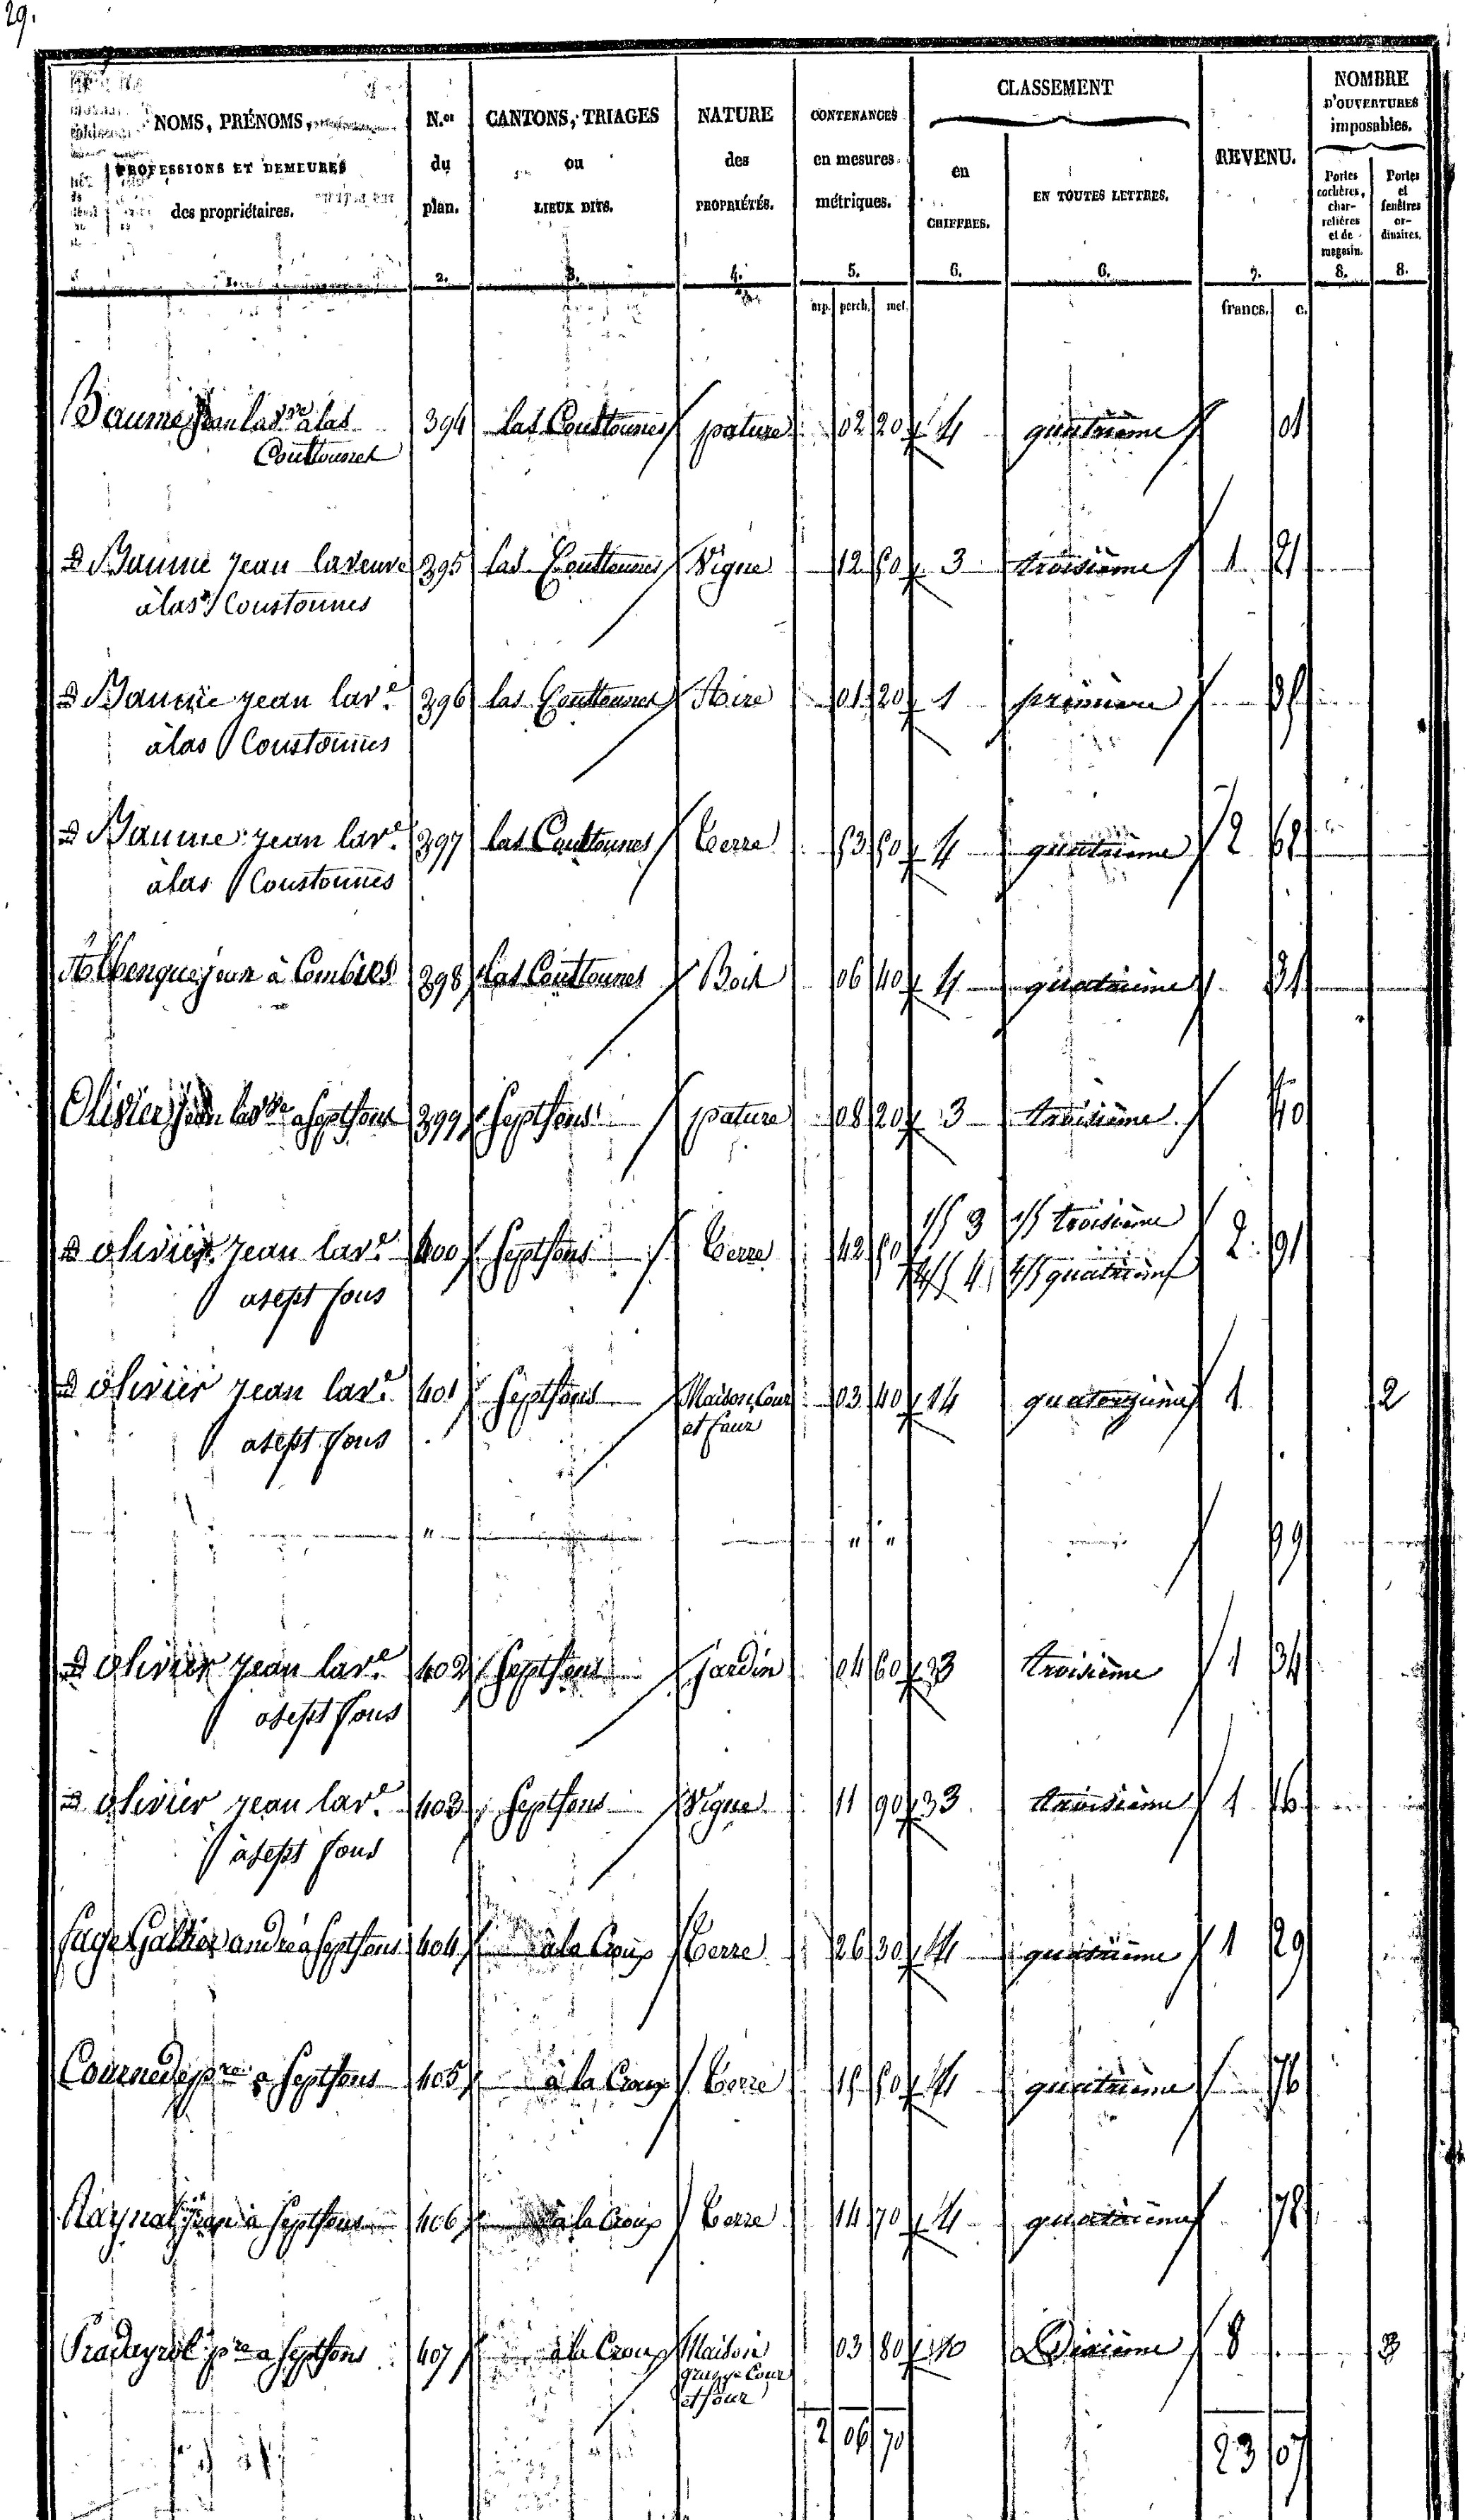 29.
NOMS, PRÉNOMS,
PROFESSIONS ET DEMEURES
des propriétaires.
1.
N.os
du
plan.
2.
CANTONS, TRIAGES
ou
LIEUX DITS.
3.
NATURE
des
PROPRIÉTÉS.
4.
CONTENANCES
en mesures
métriques.
5.
CLASSEMENT
en
CHIFFRES.
6.
EN TOUTES LETTRES.
6.
REVENU.
7.
NOMBRE
D'OUVERTURES
imposables.
Portes
cochères,
char-
retières
et de
magasin.
8.
Portes
et
fenêtres
or-
dinaires.
8.
arp. perch. met. francs. c.
Baume Jean la ve à las 394 las Couttounes pature 02 20 4 quatrième 01
Couttounes
D Baume jean laveuve 395 las Couttounes Vigne 12 50 3 troisième 1 21
à las Coustounes
D Baume jean lave 396 las Couttounes Aire 01 20 1 première
à las Coustounes
D Baume jean lave 397 las Couttounes Terre 53 50 4 quatrième 2 62
à las Coustounes
Albenque jean à Combes 398 las Couttounes Bois 06 40 4 quatrième 31
Olivier jean la ve a Septfons 399 Septfons pature 08 20 3 troisième 40
D olivier jean lave 400 Septfons Terre 42 50 1/5 3 1/5 troisième 2 91
4/5 4 4/5 quatrième
a sept fons
D olivier jean lave 401 Septfons Maison, Cour 03 40 14 quatorzième 1 2
et four
a sept fons
" " " 99
D olivier jean lave 402 Septfons Jardin 04 60 3 troisième 1 34
a sept fons
D olivier jean lave 403 Septfons Vigne 11 90 3 troisième 1 16
à sept fons
Fage Galtier andré a Septfons 404 à la Croup Terre 26 30 4 quatrième 1 29
Cournede pre a Septfons 405 à la Croup Terre 15 50 4 quatrième 76
Raynal jean à Septfons 406 à la Croup Terre 14 70 4 quatrième 72
Pradayrol pre a Septfons 407 à la Croup Maison 03 80 10 Dixième 8 3
grange Cour
et four
2 06 70 23 07